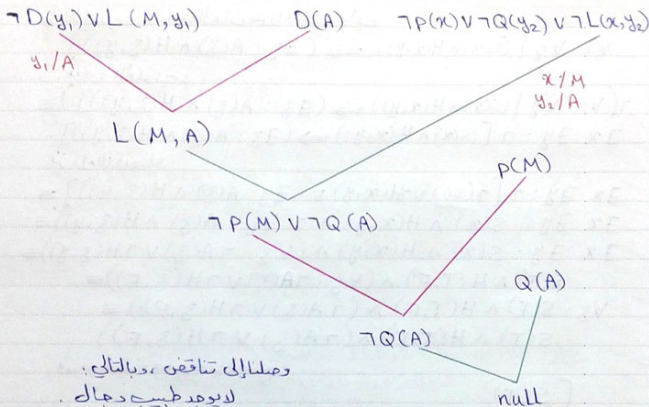 ¬D(y₁)∨L(M,y₁) D(A) ¬P(x)∨¬Q(y₂)∨¬L(x,y₂)
y₁/A
x/M
y₂/A
L(M,A)
P(M)
¬P(M)∨¬Q(A)
Q(A)
¬Q(A)
وصلنا إلى تناقض، وبالتالي:
لا يوجد طبيب دجال.
null